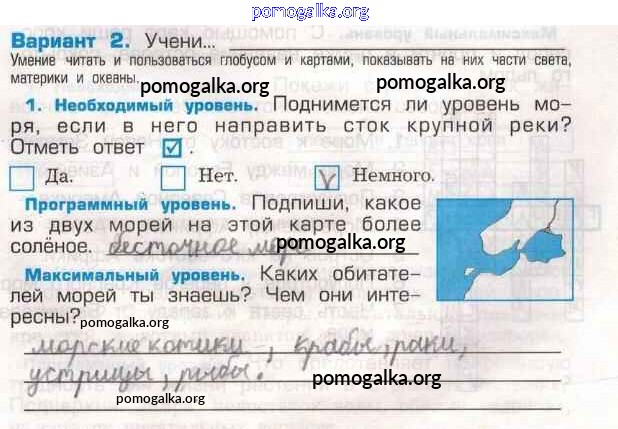 pomogalka.org
Вариант 2. Учени...
Умение читать и пользоваться глобусом и картами, показывать на них части света,
материки и океаны.
pomogalka.org pomogalka.org
1. Необходимый уровень. Поднимется ли уровень мо-
ря, если в него направить сток крупной реки?
Отметь ответ ☑.
pomogalka.org
Да. Нет. Немного.
Программный уровень. Подпиши, какое
из двух морей на этой карте более
солёное. бесточное море
pomogalka.org
Максимальный уровень. Каких обитате-
лей морей ты знаешь? Чем они инте-
ресны?
pomogalka.org
морские котики, крабы, раки,
устрицы, рыбы.
pomogalka.org
pomogalka.org